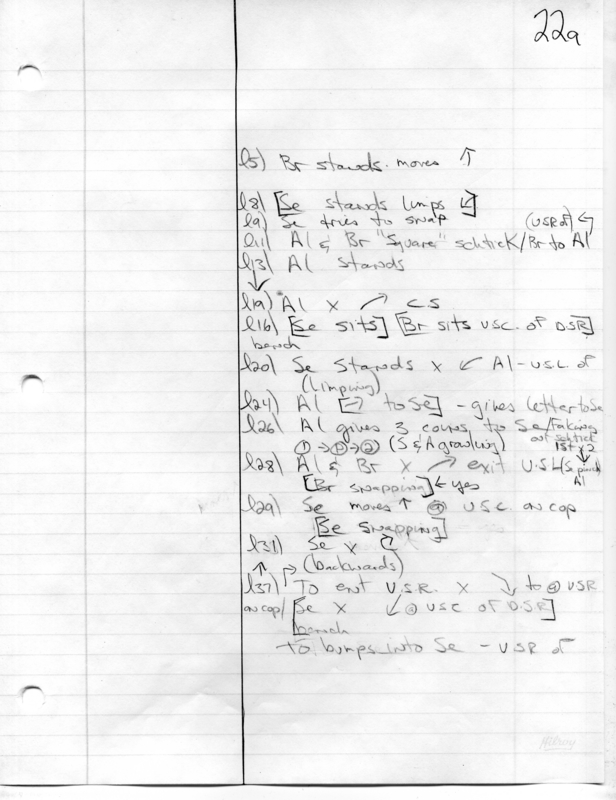 22a
l5) Br stands. moves ↑
l8) [Se stands limps ↙]
l9) Se tries to swap (USR of) ↰
l11) Al & Br "Square" schtick/Br to Al
l13) Al stands
↓
l19) Al x ↗ CS
l16) [Se sits] [Br sits USC. of DSR]
bench
l20) Se stands x ↙ Al - U.S.C. of
(limping)
l24) Al [→ to Se] - gives letter to Se
l26) Al gives 3 coins to Se/Faking
out schtick
①→①→② (S & A growling) 1st x 2
l28) Al & Br x ↗ exit U.S.L (S
[Br swapping] ← yes Al
l29) Se moves ↑ @ U.S.C. on cop
[Se swapping]
l31) Se x
↑ (backwards)
l37) To ent U.S.R. x ↘ to @ USR
on cop/ [Se x ↙ @ USC of D.S.R]
bench
To bumps into Se - U.S.R of
Hilroy